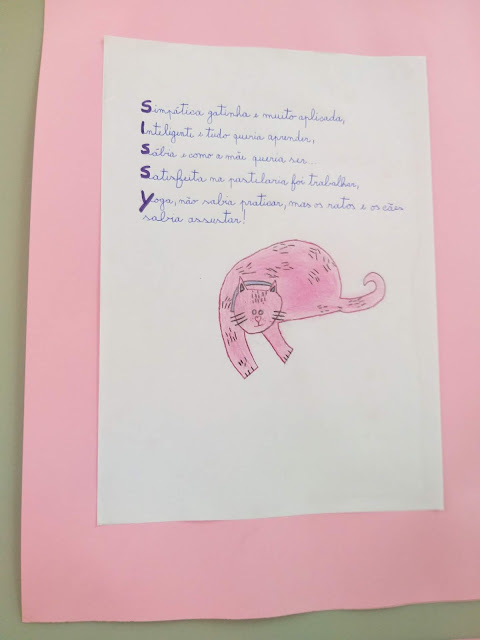 Simpática gatinha e muito aplicada,
Inteligente e tudo queria aprender,
Sábia e como a mãe queria ser...
Satisfeita na pastilaria foi trabalhar,
Yoga, não sabia praticar, mas os ratos e os cães
sabia assustar!